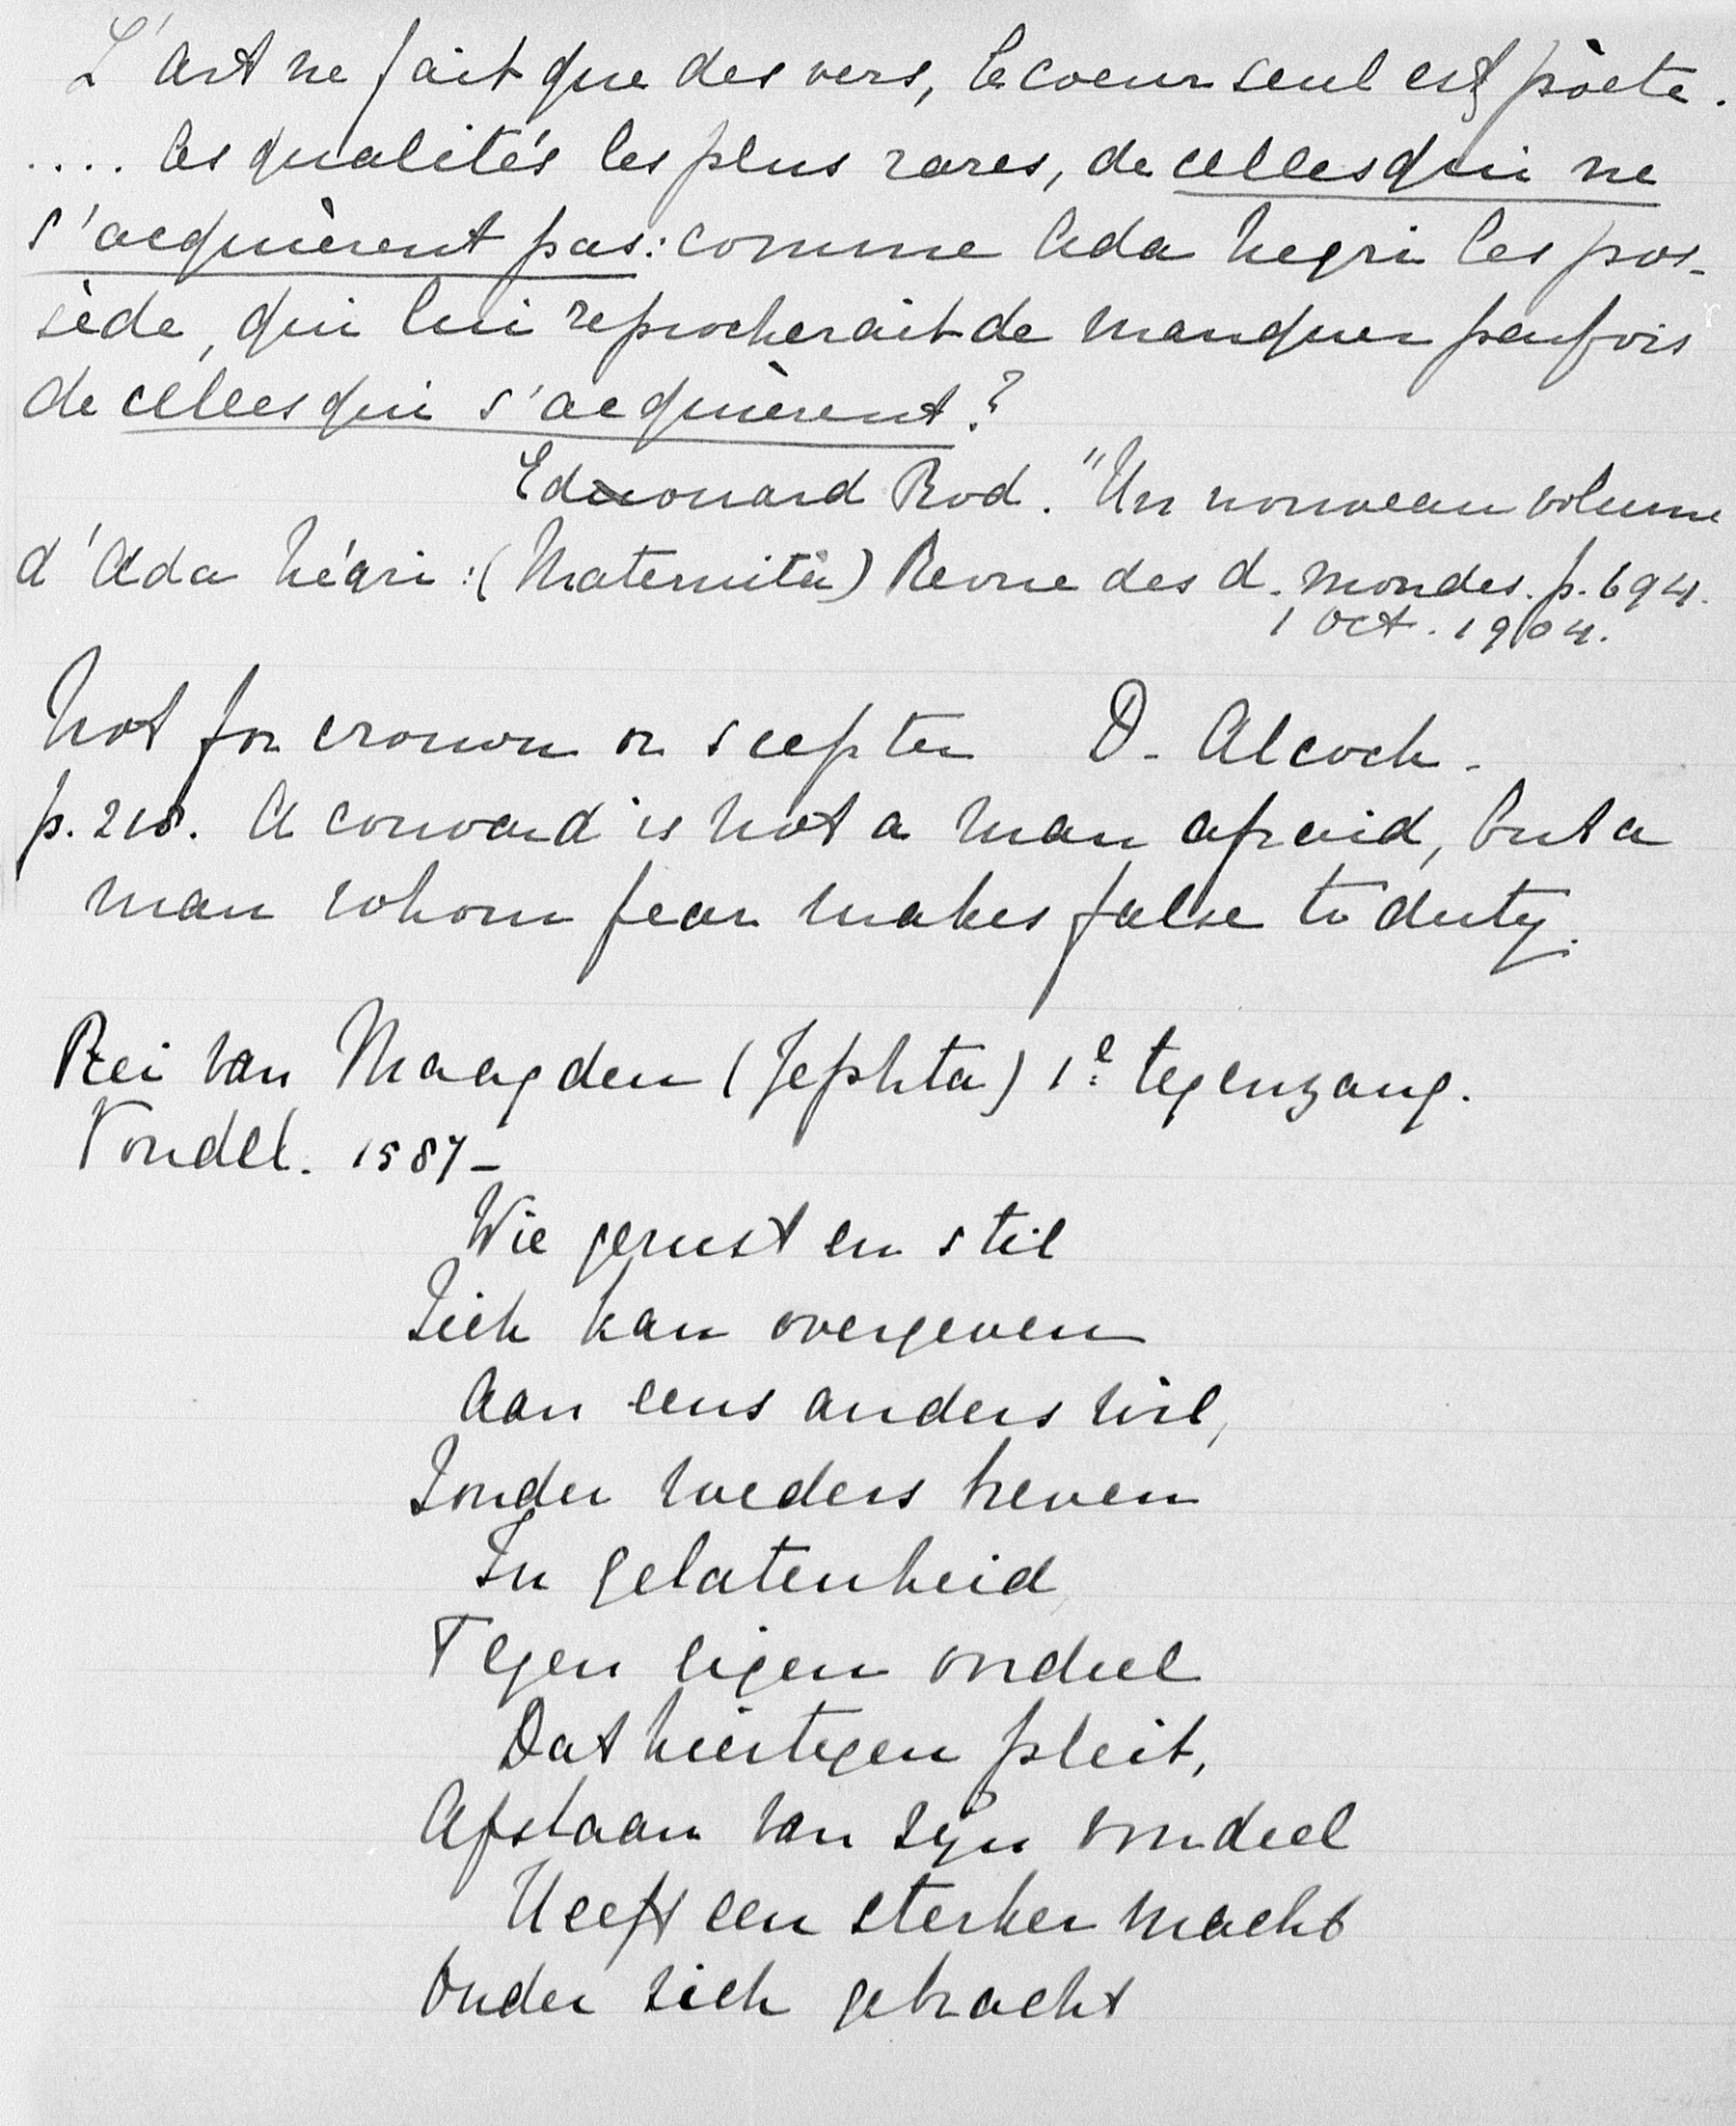 L'art ne fait que des vers, le coeur seul est pòete.
.... les qualités les plus rares, de celles qui ne
s'acquièrent pas: comme Ada Negri les pos-
sède, qui lui reprocherait de manquer parfois
de celles qui s'acquièrent?
Edouard Rod. "Un nouveau volume
d'Ada Négri: (Maternità) Revue des d. mondes. p. 694.
1 Oct. 1904.
Not for crown or scepter D. Alcock.
p. 218. A coward is not a man afraid, but a
man whom fear makes false to duty.
Rei van Maagden (Jephta) 1e tegenzang.
Vondel. 1587-
Wie gerust en stil
Zich kan overgeven
Aan eens anders wil,
Zonder weders treven
In gelatenheid,
Tegen eigen oordeel
Dat hiertegen pleit,
Afstaan van zijn voordeel
Heeft een sterker macht
Onder zich gebracht